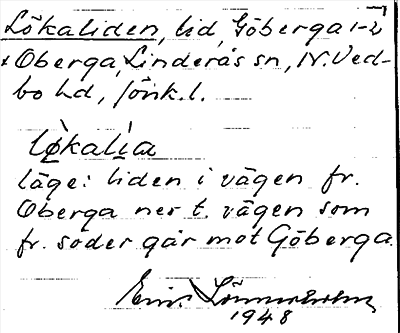 Lökaliden, lid, Göberga 1-2
& Oberga, Linderås sn, N. Ved-
bo hd, Jönk. l.
lø̀kalìa
läge: liden i vägen fr.
Oberga ner t. vägen som
fr. söder går mot Göberga.
1948